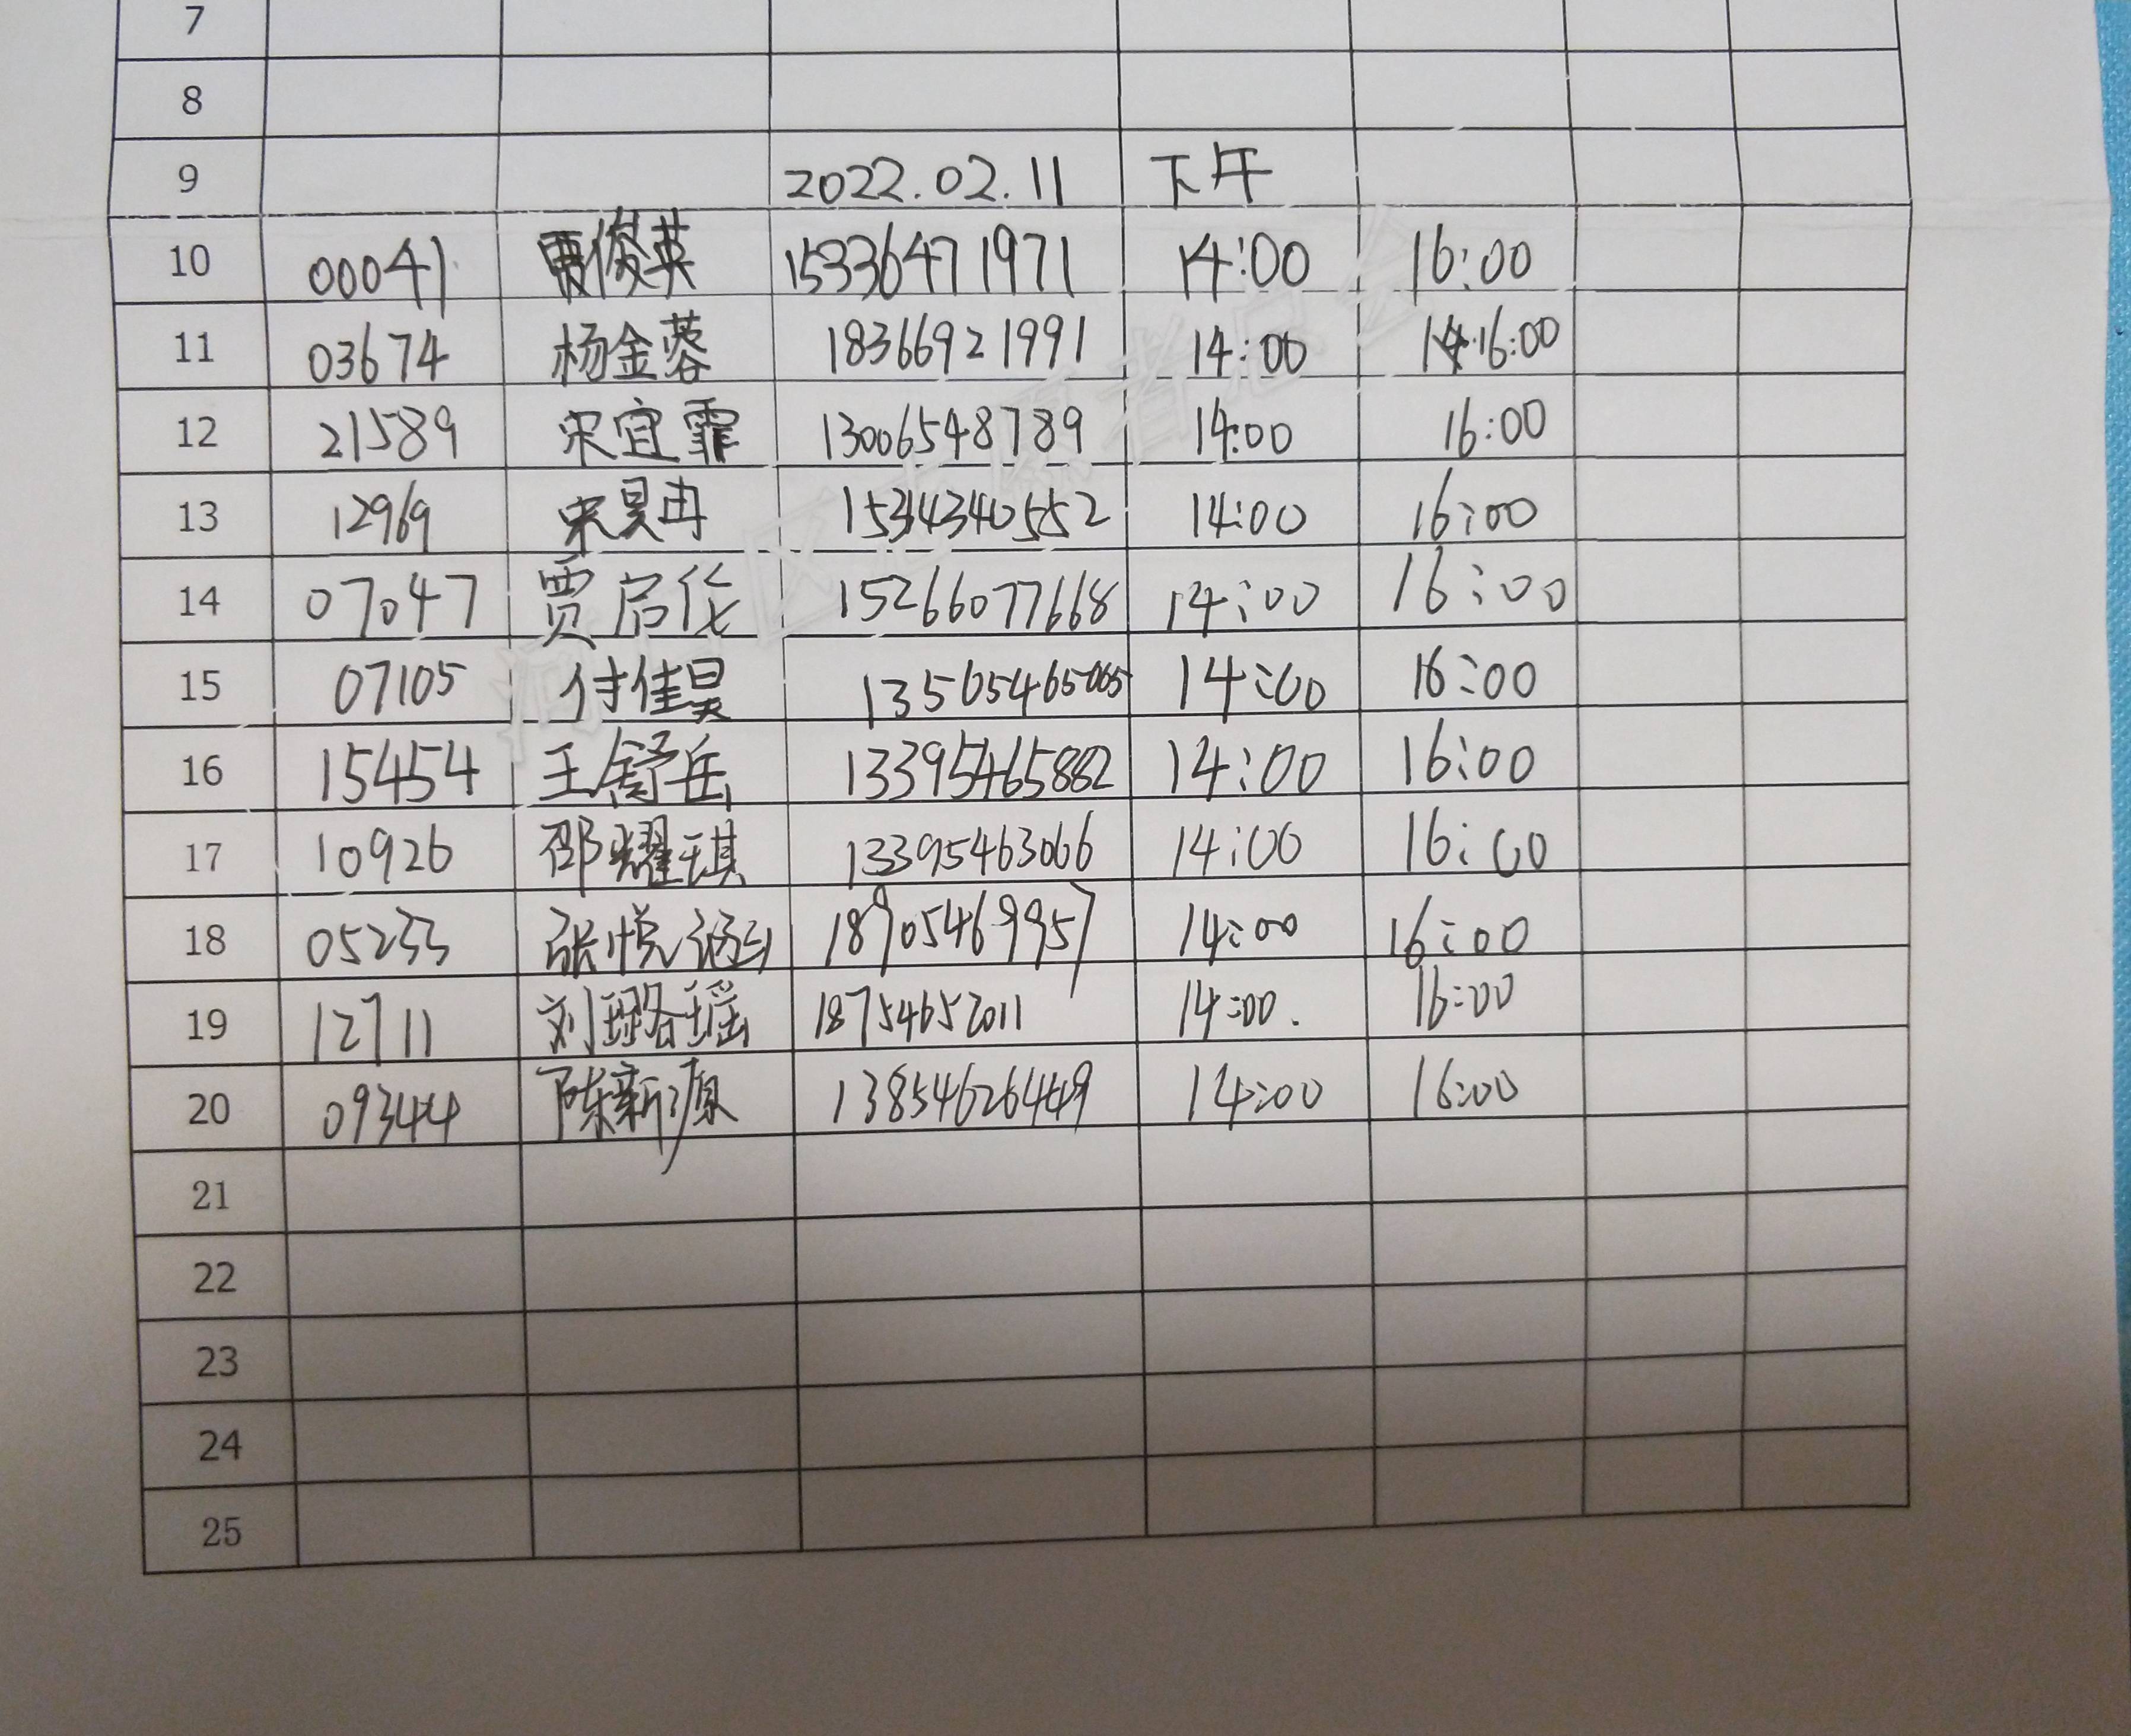 7
8
9 2022.02.11 下午
10 00041 贾俊英 15336471971 14:00 16:00
11 03674 杨金蓉 18366921991 14:00 16:00
12 21589 宋宜霏 13006548789 14:00 16:00
13 12969 宋昊冉 15314340552 14:00 16:00
14 07047 贾启华 15266077668 14:00 16:00
15 07105 付佳昊 14:00 16:00
16 15454 王舒岳 13395465882 14:00 16:00
17 10926 邵耀琪 13395463066 14:00 16:00
18 05233 张悦涵 18905469957 14:00 16:00
19 12711 刘璐瑶 18754652011 14:00. 16:00
20 09344 陈新源 13854626449 14:00 16:00
21
22
23
24
25